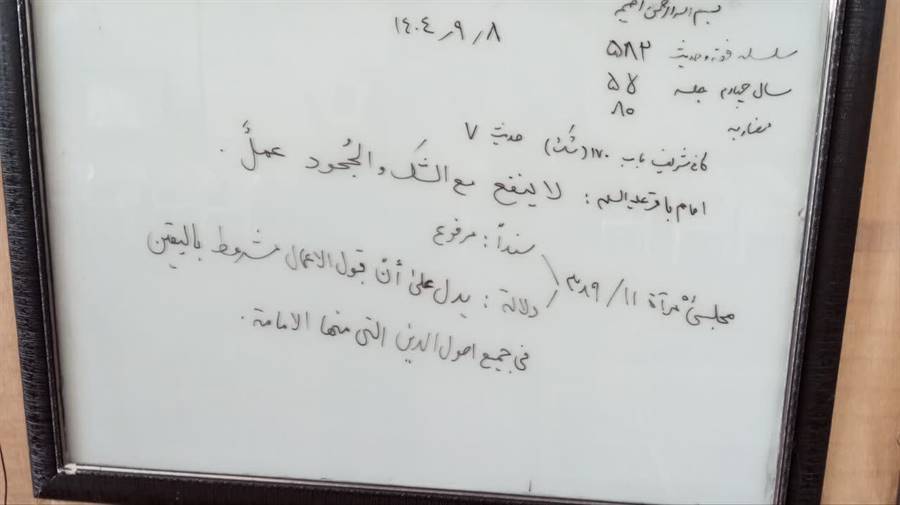 بسم الله الرحمن الرحیم
۱۴۰۴٫۹٫۸
سلسله فقه و حدیث ۵۸۲
سال چهارم جلسه ۵۷
مضاربه ۸۰
کافی شریف باب ۱۷۰ (شک) حدیث ۷
امام باقر علیه السلام : لا ینفع مع الشَک والجُحود عملٌ .
مجلسیؒ مرآة ۱۱/ ۱۸۹
سنداً : مرفوع
دلالة : یدل علیٰ أنّ قبول الاعمال مشروط بالیقین
فی جمیع اصول الدین التی منها الامامة .